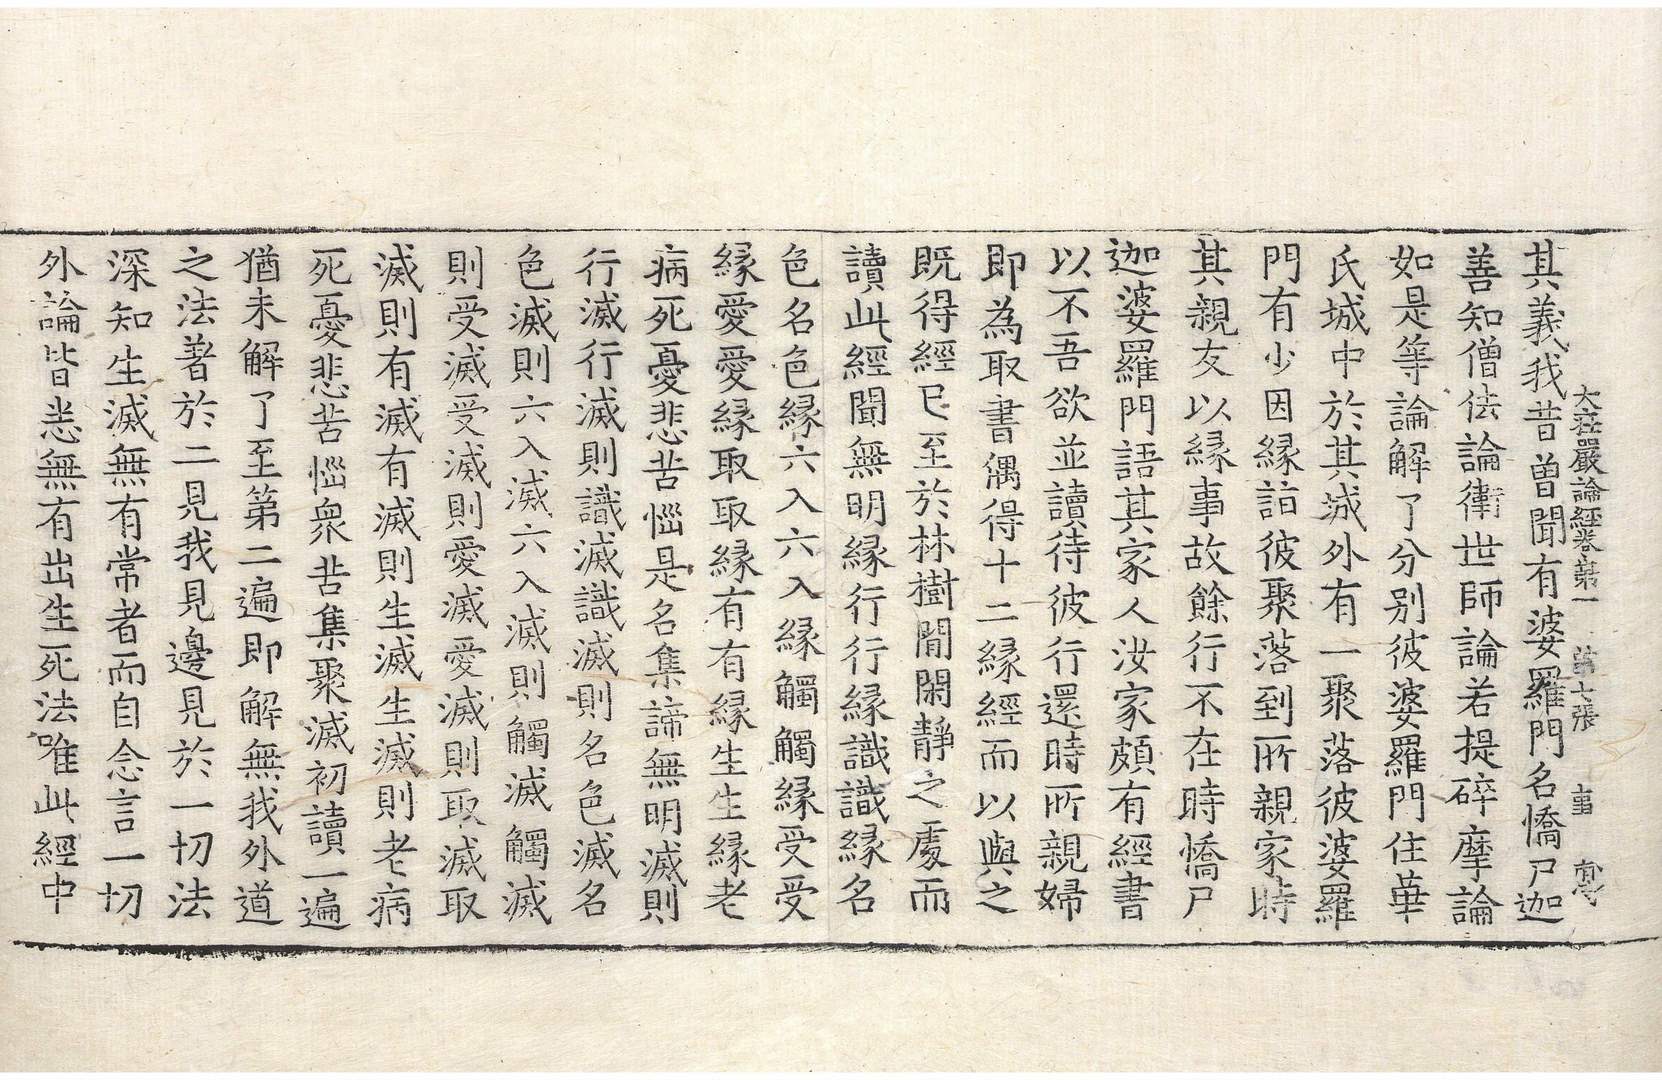 大莊嚴論經卷第一　第七張　事
其義我昔曾聞有婆羅門名憍尸迦
善知僧佉論衛世師論若提碎摩論
如是等論解了分別彼婆羅門住華
氏城中於其城外有一聚落彼婆羅
門有少因緣詣彼聚落到所親家時
其親友以緣事故餘行不在時憍尸
迦婆羅門語其家人汝家頗有經書
以不吾欲並讀待彼行還時所親婦
即為取書偶得十二緣經而以與之
既得經已至於林樹間閑靜之處而
讀此經聞無明緣行行緣識識緣名
色名色緣六入六入緣觸觸緣受受
緣愛愛緣取取緣有有緣生生緣老
病死憂悲苦惱是名集諦無明滅則
行滅行滅則識滅識滅則名色滅名
色滅則六入滅六入滅則觸滅觸滅
則受滅受滅則愛滅愛滅則取滅取
滅則有滅有滅則生滅生滅則老病
死憂悲苦惱眾苦集聚滅初讀一遍
猶未解了至第二遍即解無我外道
之法著於二見我見邊見於一切法
深知生滅無有常者而自念言一切
外論皆悉無有出生死法唯此經中